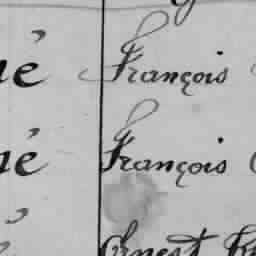 né François
né François
Ernest